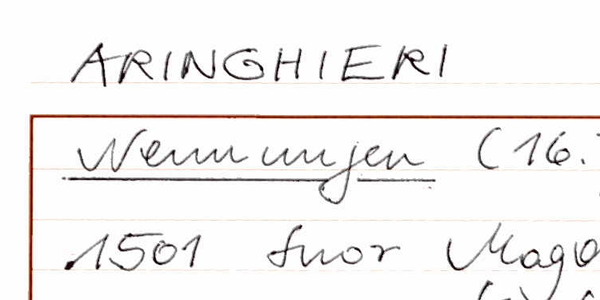 ARINGHIERI
Nennungen (16.
1501 Suor Magd